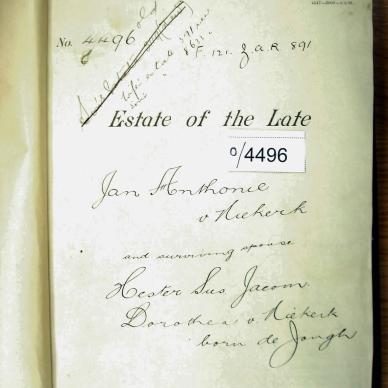 old
No. 4496
F. 121. J.a.R 891
Estate of the Late
0/4496
Jan Anthonie
v Niekerk
and surviving spouse
Hester Sus. Jacom.
Dorothea v Niekerk
born de Jongh